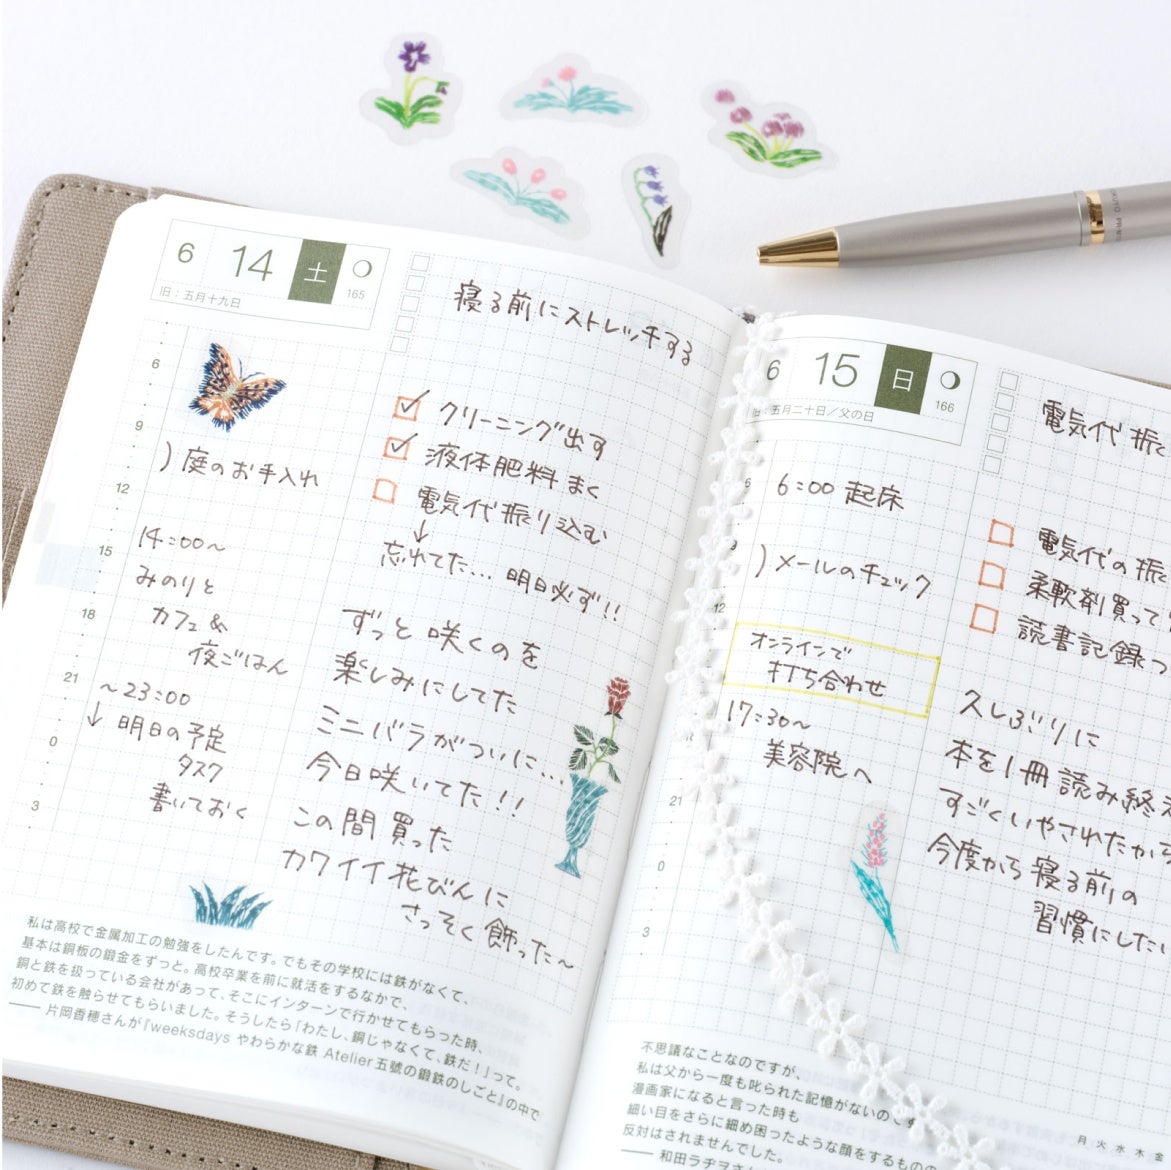 6 14 土
165
旧：五月十九日
寝る前にストレッチする
クリーニング出す
液体肥料まく
電気代振り込む
↓
忘れてた… 明日必ず!!
6
9
12
15
18
21
0
3
)庭のお手入れ
14:00〜
みのりと
カフェ&
夜ごはん
〜23:00
↓明日の予定
タスク
書いておく
ずっと咲くのを
楽しみにしてた
ミニバラがついに…
今日咲いてた!!
この間買った
カワイイ花びんに
さっそく飾った〜
私は高校で金属加工の勉強をしたんです。でもその学校には鉄がなくて、
基本は銅板の鍛金をずっと。高校卒業を前に就活をするなかで、
銅と鉄を扱っている会社があって、そこにインターンで行かせてもらった時、
初めて鉄を触らせてもらいました。そうしたら「わたし、銅じゃなくて、鉄だ！」って。
—— 片岡香穂さんが『weeksdays やわらかな鉄 Atelier五號の鍛鉄のしごと』の中で
6 15 日
166
旧：五月二十日／父の日
電気代 振
6
9
12
21
0
3
6:00 起床
)メールのチェック
オンラインで
打ち合わせ
17:30〜
美容院へ
電気代の振
柔軟剤買って
読書記録つ
久しぶりに
本を1冊読み終え
すごくいやされたから
今度から寝る前の
習慣にしたい
不思議なことなのですが、
私は父から一度も叱られた記憶がないのです
漫画家になると言った時も
細い目をさらに細め困ったような顔をするものの
反対はされませんでした。
—— 和田ラヂヲさ
月 火 水 木 金